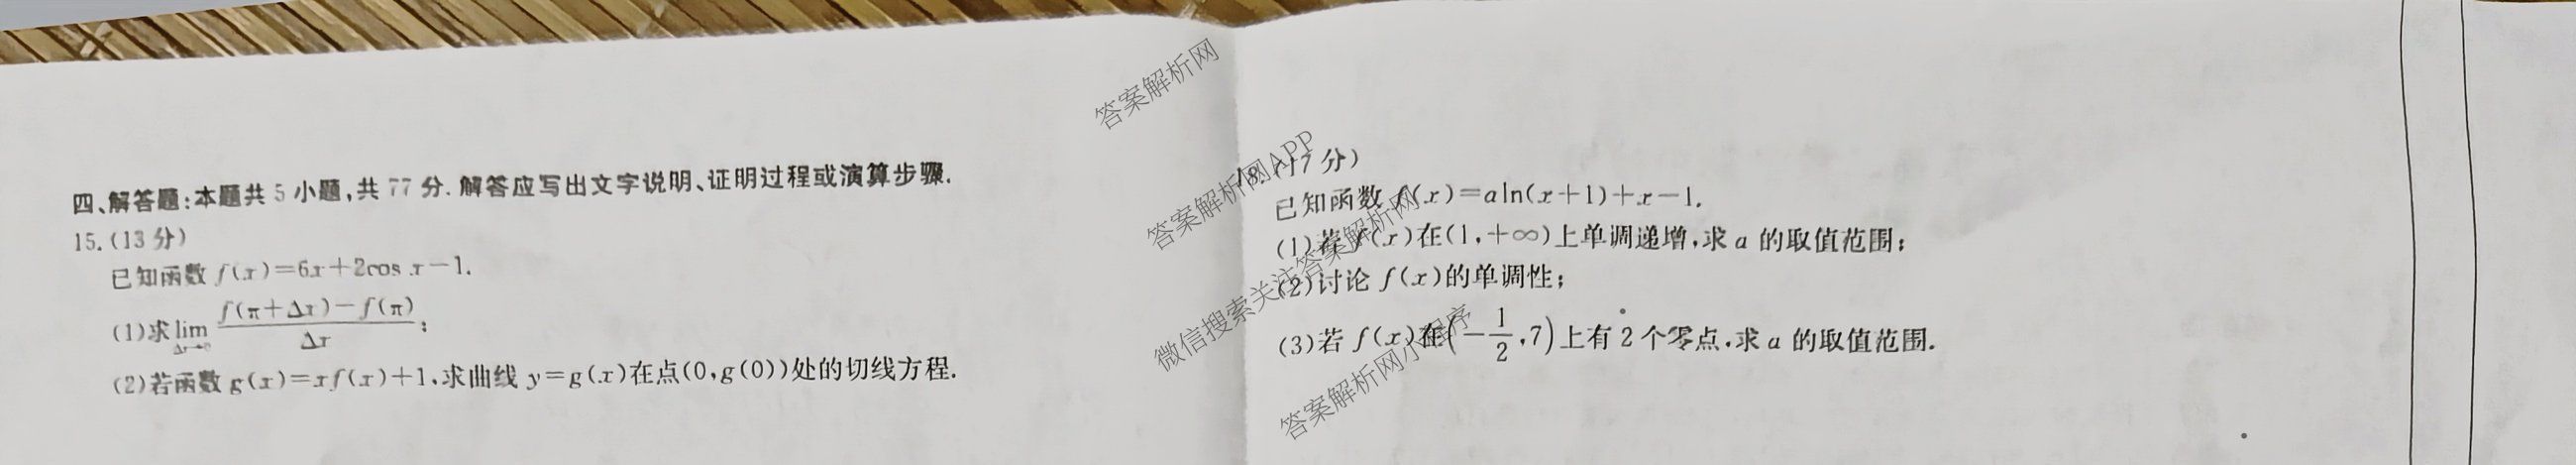 四、解答题:本题共 5 小题,共 77 分. 解答应写出文字说明、证明过程或演算步骤.
15. (13 分)
已知函数 f(x)=6x+2cos x-1.
(1)求 lim_{Δx→0} \frac{f(π+Δx)-f(π)}{Δx};
(2)若函数 g(x)=xf(x)+1,求曲线 y=g(x)在点(0,g(0))处的切线方程.
18. (17 分)
已知函数 f(x)=aln(x+1)+x-1.
(1)若 f(x)在(1,+∞)上单调递增,求 a 的取值范围;
(2)讨论 f(x)的单调性;
(3)若 f(x)在(-\frac{1}{2},7)上有 2 个零点,求 a 的取值范围.
答案解析网
答案解析网APP
微信搜索关注答案解析网
答案解析网小程序